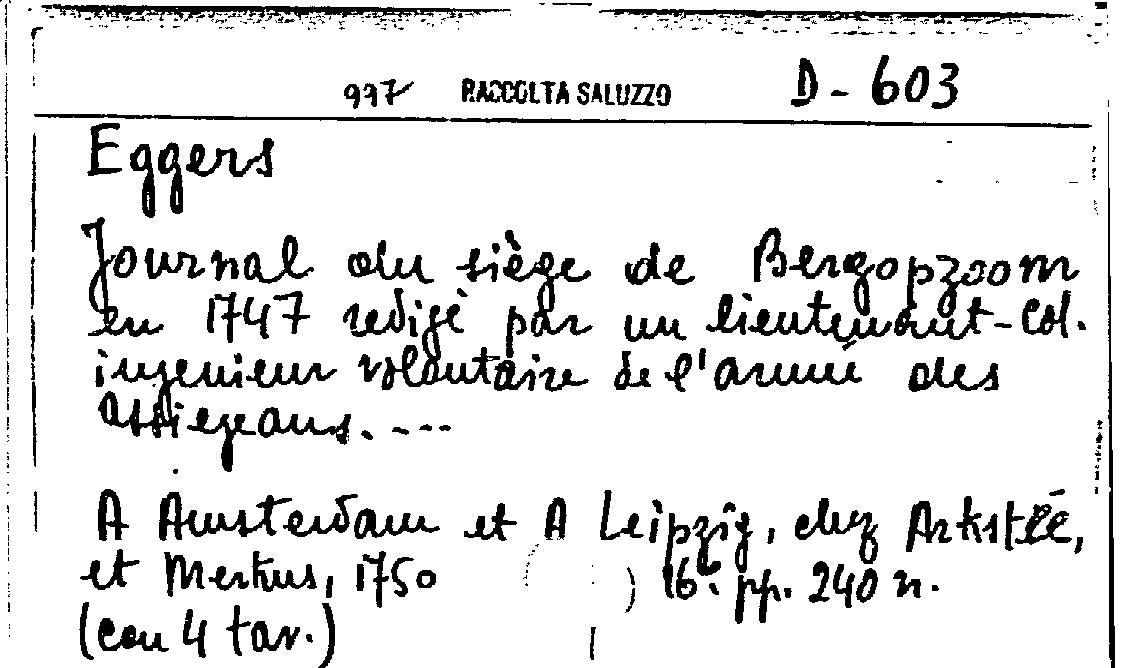 997 RACCOLTA SALUZZO D-603
Eggers
Journal du siège de Bergopzoom
en 1747 redigé par un lieutenant-col.
ingenieur volontaire de l'armée des
assiegeans. ---
A Amsterdam et A Leipzig, chez Arkstée,
et Merkus, 1750 ( ) 16°. pp. 240 n.
(con 4 tav.)